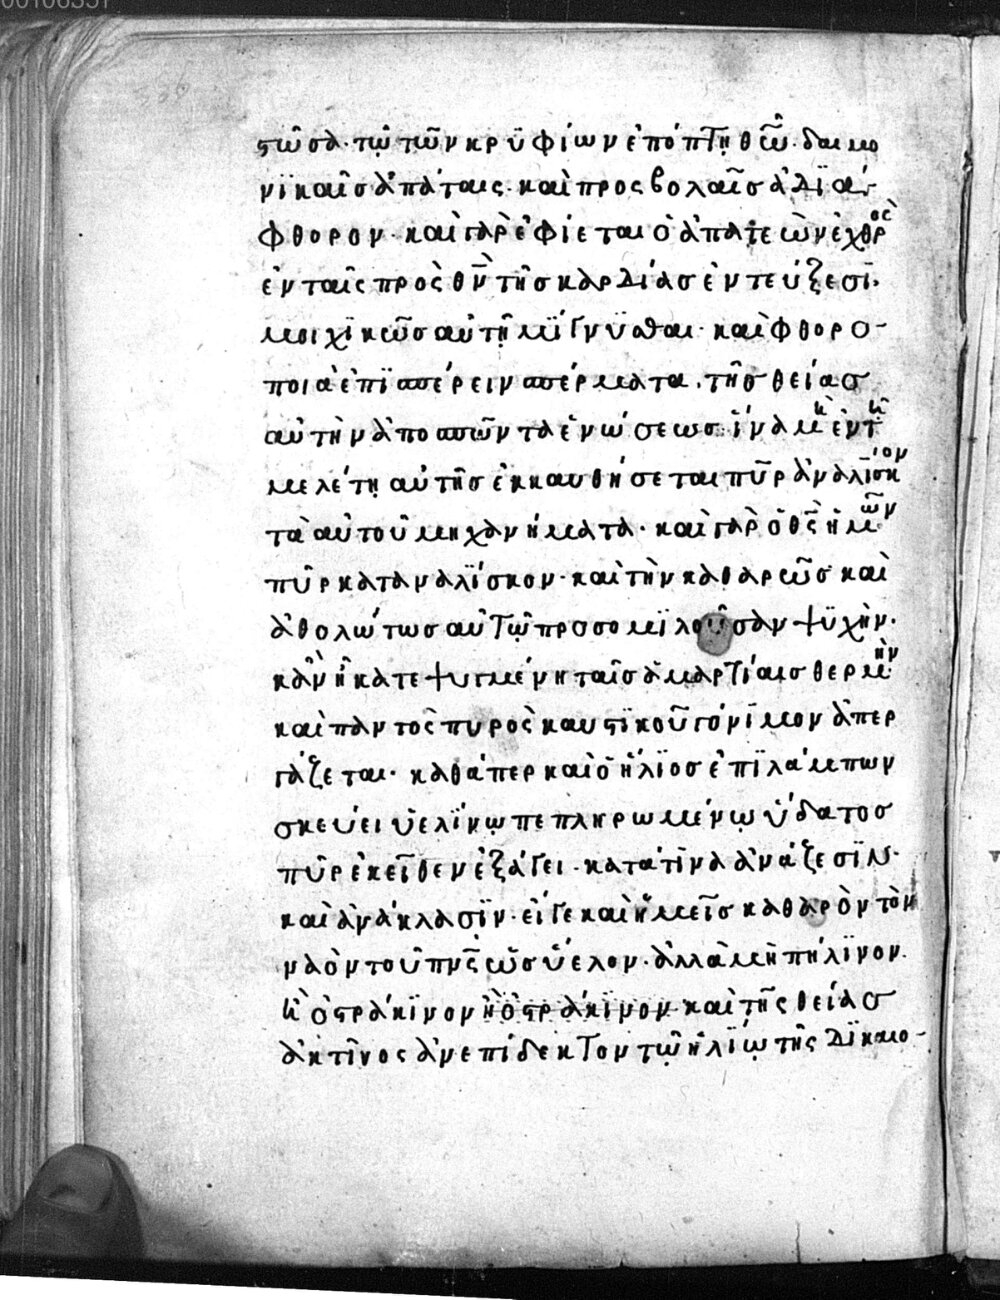 00106351
στῶσα· τῷ τῶν κρϋφίων ἐπόπτῃ θῶ· δαιμο
νϊκαῖς ἀπάταις· καὶ προςβολαῖς ἀδϊά-
φθορον· καὶ γὰρ ἐφίεται ὁ ἀπατεὼν ἐχθρὸς
ἐν ταῖς πρὸς θν τῆς καρδίας ἐντεύξεσϊ·
μοιχϊκῶς αὐτῇ μϊγνϋσθαι· καὶ φθορο-
ποιὰ ἐπϊσπέρειν σπέρματα, τῆς θείας
αὐτὴν ἀποσπῶντα ἑνώσεως· ἵνα μὴ ἐν τῆ
μελέτῃ αὐτῆς ἐκκαυθήσεται πῦρ ἀναλῖσκον
τὰ αὐτοῦ μηχανήματα· καὶ γὰρ ὁ θς ἡμῶν
πῦρ καταναλϊσκον· καὶ τὴν καθαρῶς καὶ
ἀθολώτως αὐτῷ προσομϊλοῦσαν ψϋχὴν·
κἂν ἦ κατεψυγμένη ταῖς ἁμαρτίαις θερμὴν
καὶ παντὸς πυρὸς καυστϊκοῦ γόνϊμον ἀπερ
γάζεται· καθάπερ καὶ ὁ ἥλϊος ἐπϊλάμπων
σκεύει ὑελϊνῳ πεπληρωμένῳ ὕδατος
πῦρ ἐκεῖθεν ἐξάγει· κατά τϊνα ἀνάζεσϊν·
καὶ ἀνάκλασϊν· εἴγε καὶ ἡμεῖς καθαρὸν τὸν
ναὸν τοῦ πνς ὡς ὕελον· ἀλλὰ μὴ πήλϊνον·
ἢ ὀστράκϊνον ἢ ὀστράκϊνον καὶ τῆς θείας
ἀκτῖνος ἀνεπίδεκτον τῷ ἡλϊῳ τῆς δϊκαιο-